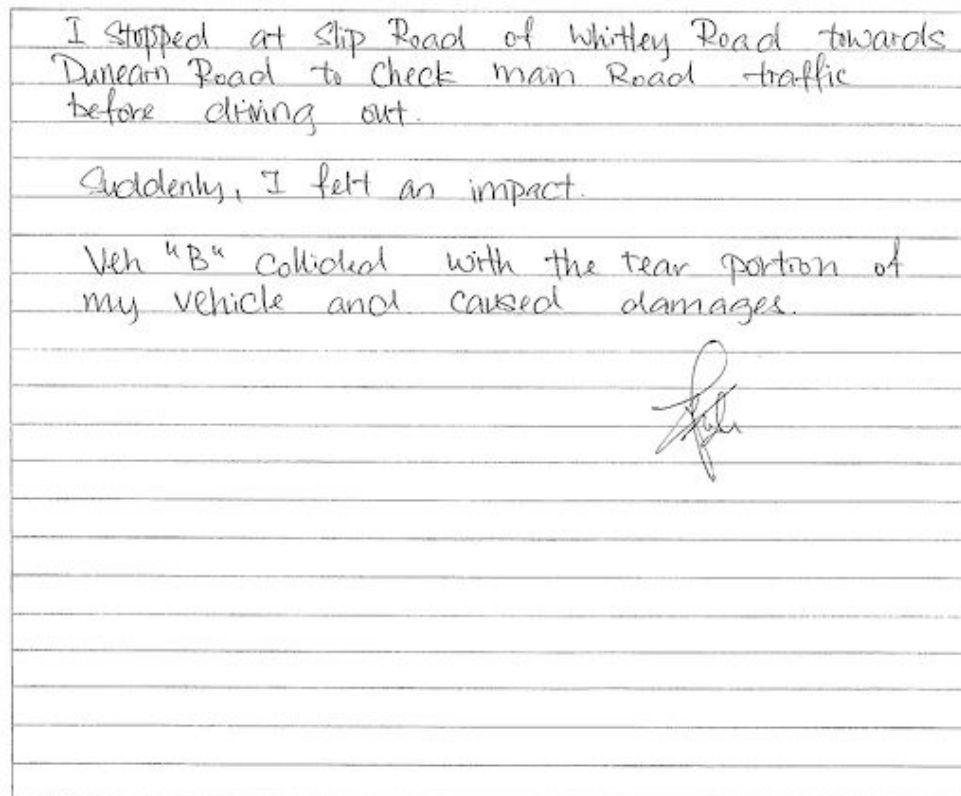 I stopped at slip Road of Whitley Road towards
Dunearn Road to check main Road traffic
before driving out.
Suddenly, I felt an impact.
Veh "B" collided with the rear portion of
my vehicle and caused damages.